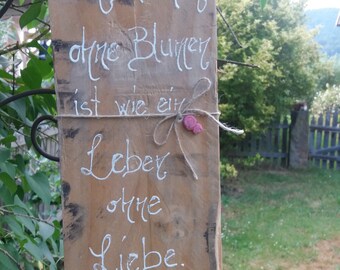 ohne Blumen
ist wie ein
Leben
ohne
Liebe.